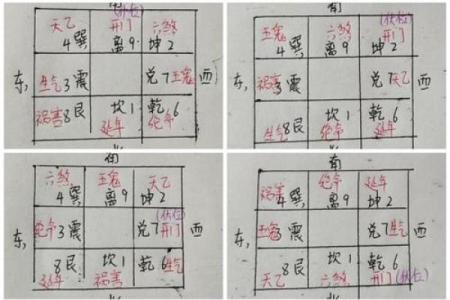 (伏位)
天乙 开门 六煞
4巽 离9 坤2
东, 生气3震 兑7五鬼 西
祸害8艮 坎1 乾6
绝命
南
(伏位)
五鬼 开门
4巽 离9 坤2
东, 祸害3震 兑7天乙 西
坎1 乾6
生气8艮 绝命 延年
南
六煞 五鬼 天乙
4巽 离9 坤2
(伏位)
东, 绝命3震 兑7开门 西
8艮 坎1 乾6生气
延年 祸害
南
祸害 绝命 延年
4巽 离9 坤2
东, 五鬼3震 兑7生气 西
8艮 坎1 乾6
天乙 六煞 开门(伏位)